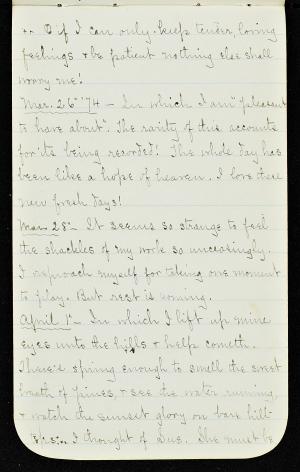 ++ O if I can only keep tender, loving
feelings & be patient nothing else shall
worry me!
Mar. 26" '74 - In which I am "pleasant
to have about". The rarity of this accounts
for its being recorded! The whole day has
been like a hope of heaven. I love these
new fresh days!
Mar 28" - It seems so strange to feel
the shackles of my work so unceasingly.
I reproach myself for taking one moment
to play. But rest is coming.
April 1" - In which I lift up mine
eyes unto the hills & help cometh.
There's spring enough to smell the sweet
breath of pines, & see the water running,
& watch the sunset glory on bare hill-
I thought of Sue. She must be